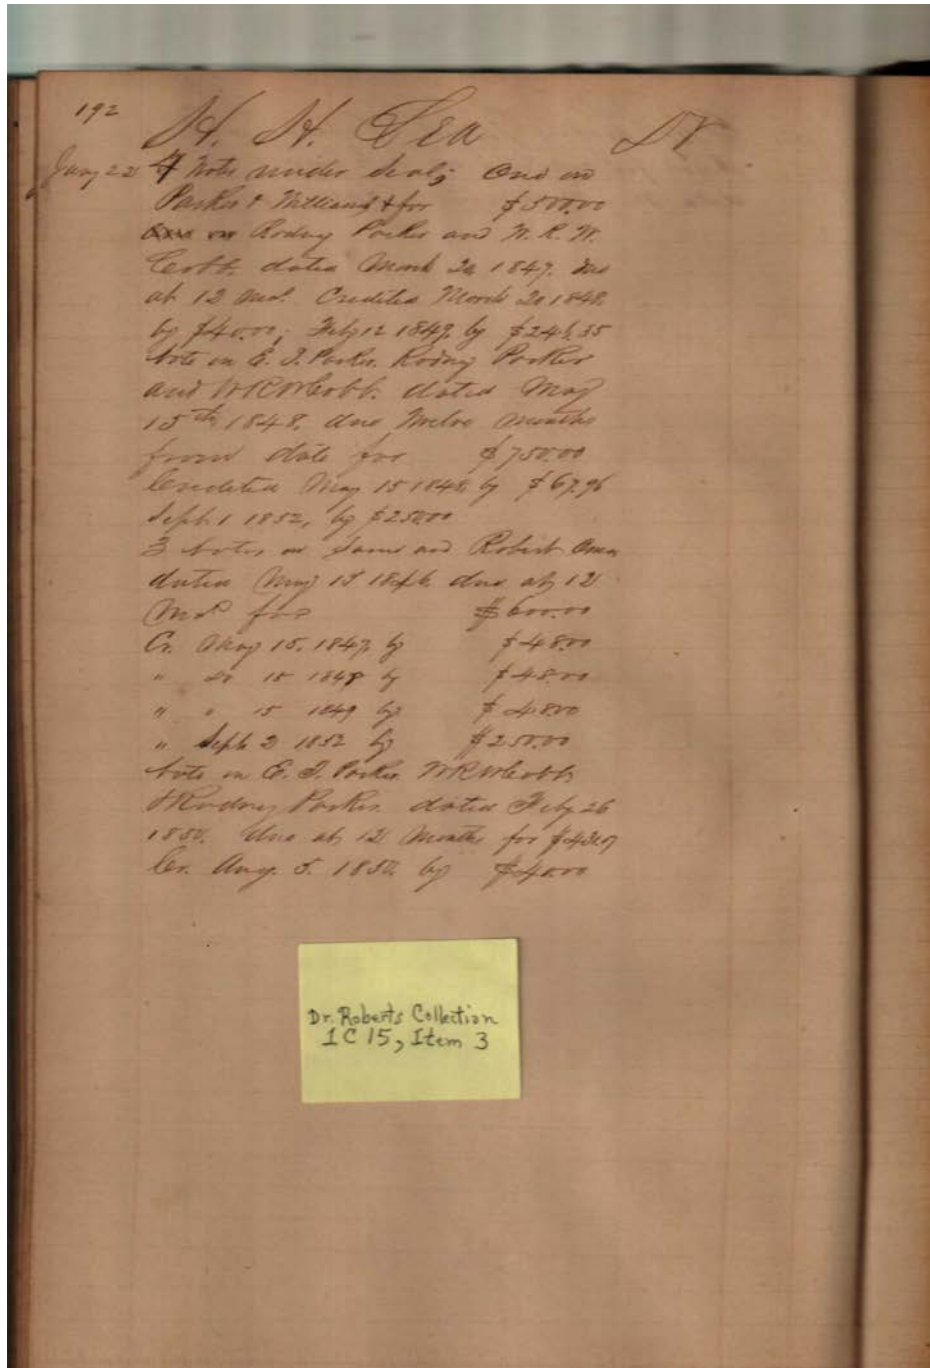 192
H. H. Lea Dr
Jany 22 4 Notes under Seal; One on
Parker & Williams & for $500.00
Rodney Parker and W. R. W.
Cobb. dated March 20 1847. due
at 12 Mos. Credited March 20 1848.
by $40.00; Feby 12 1849. by $246.35
Note on E. T. Parker. Rodney Parker
and WRWCobb. dated May
15th 1848. due Twelve Months
from date for $750.00
Credited May 15 1848 by $67.96
Sept. 1 1852, by $250.00
3 Notes on Same and Robert
dated May 15 1846 due at 12
Mos for $600.00
Cr. May 15. 1847. by $48.00
" do 15 1848 by $48.00
" " 15 1849 by $48.00
" Sept 2 1852 by $250.00
Note on E. T. Parker. WRWCobb
&Rodney Parker. dated Feby 26
1850. due at 12 Months for
Cr. Aug. 5. 1850. by $40.00
Dr. Roberts Collection
1C15, Item 3